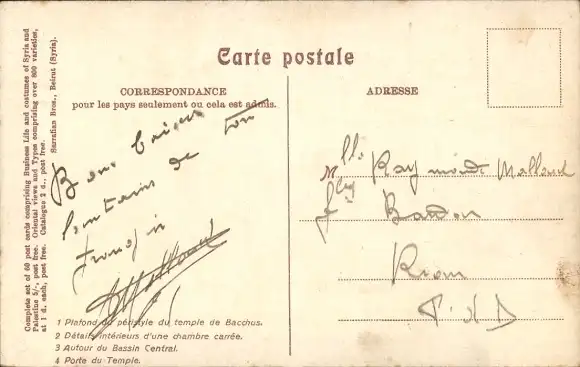 Complete set of 60 post cards comprising Business Life and costumes of Syria and
Palestine 5/-, post free. Oriental views and Types comprising over 800 varieties,
at 1 d. each, post free. Catalogue 2 d., post free.
Sarrafian Bros., Beirut (Syria).
Carte postale
CORRESPONDANCE
pour les pays seulement ou cela est admis.
Bons baisers
lointains de ton
ADRESSE
Mlle Raymonde
Riom
P. d. D
1 Plafond du péristyle du temple de Bacchus.
2 Détails intérieurs d'une chambre carrée.
3 Autour du Bassin Central.
4 Porte du Temple.